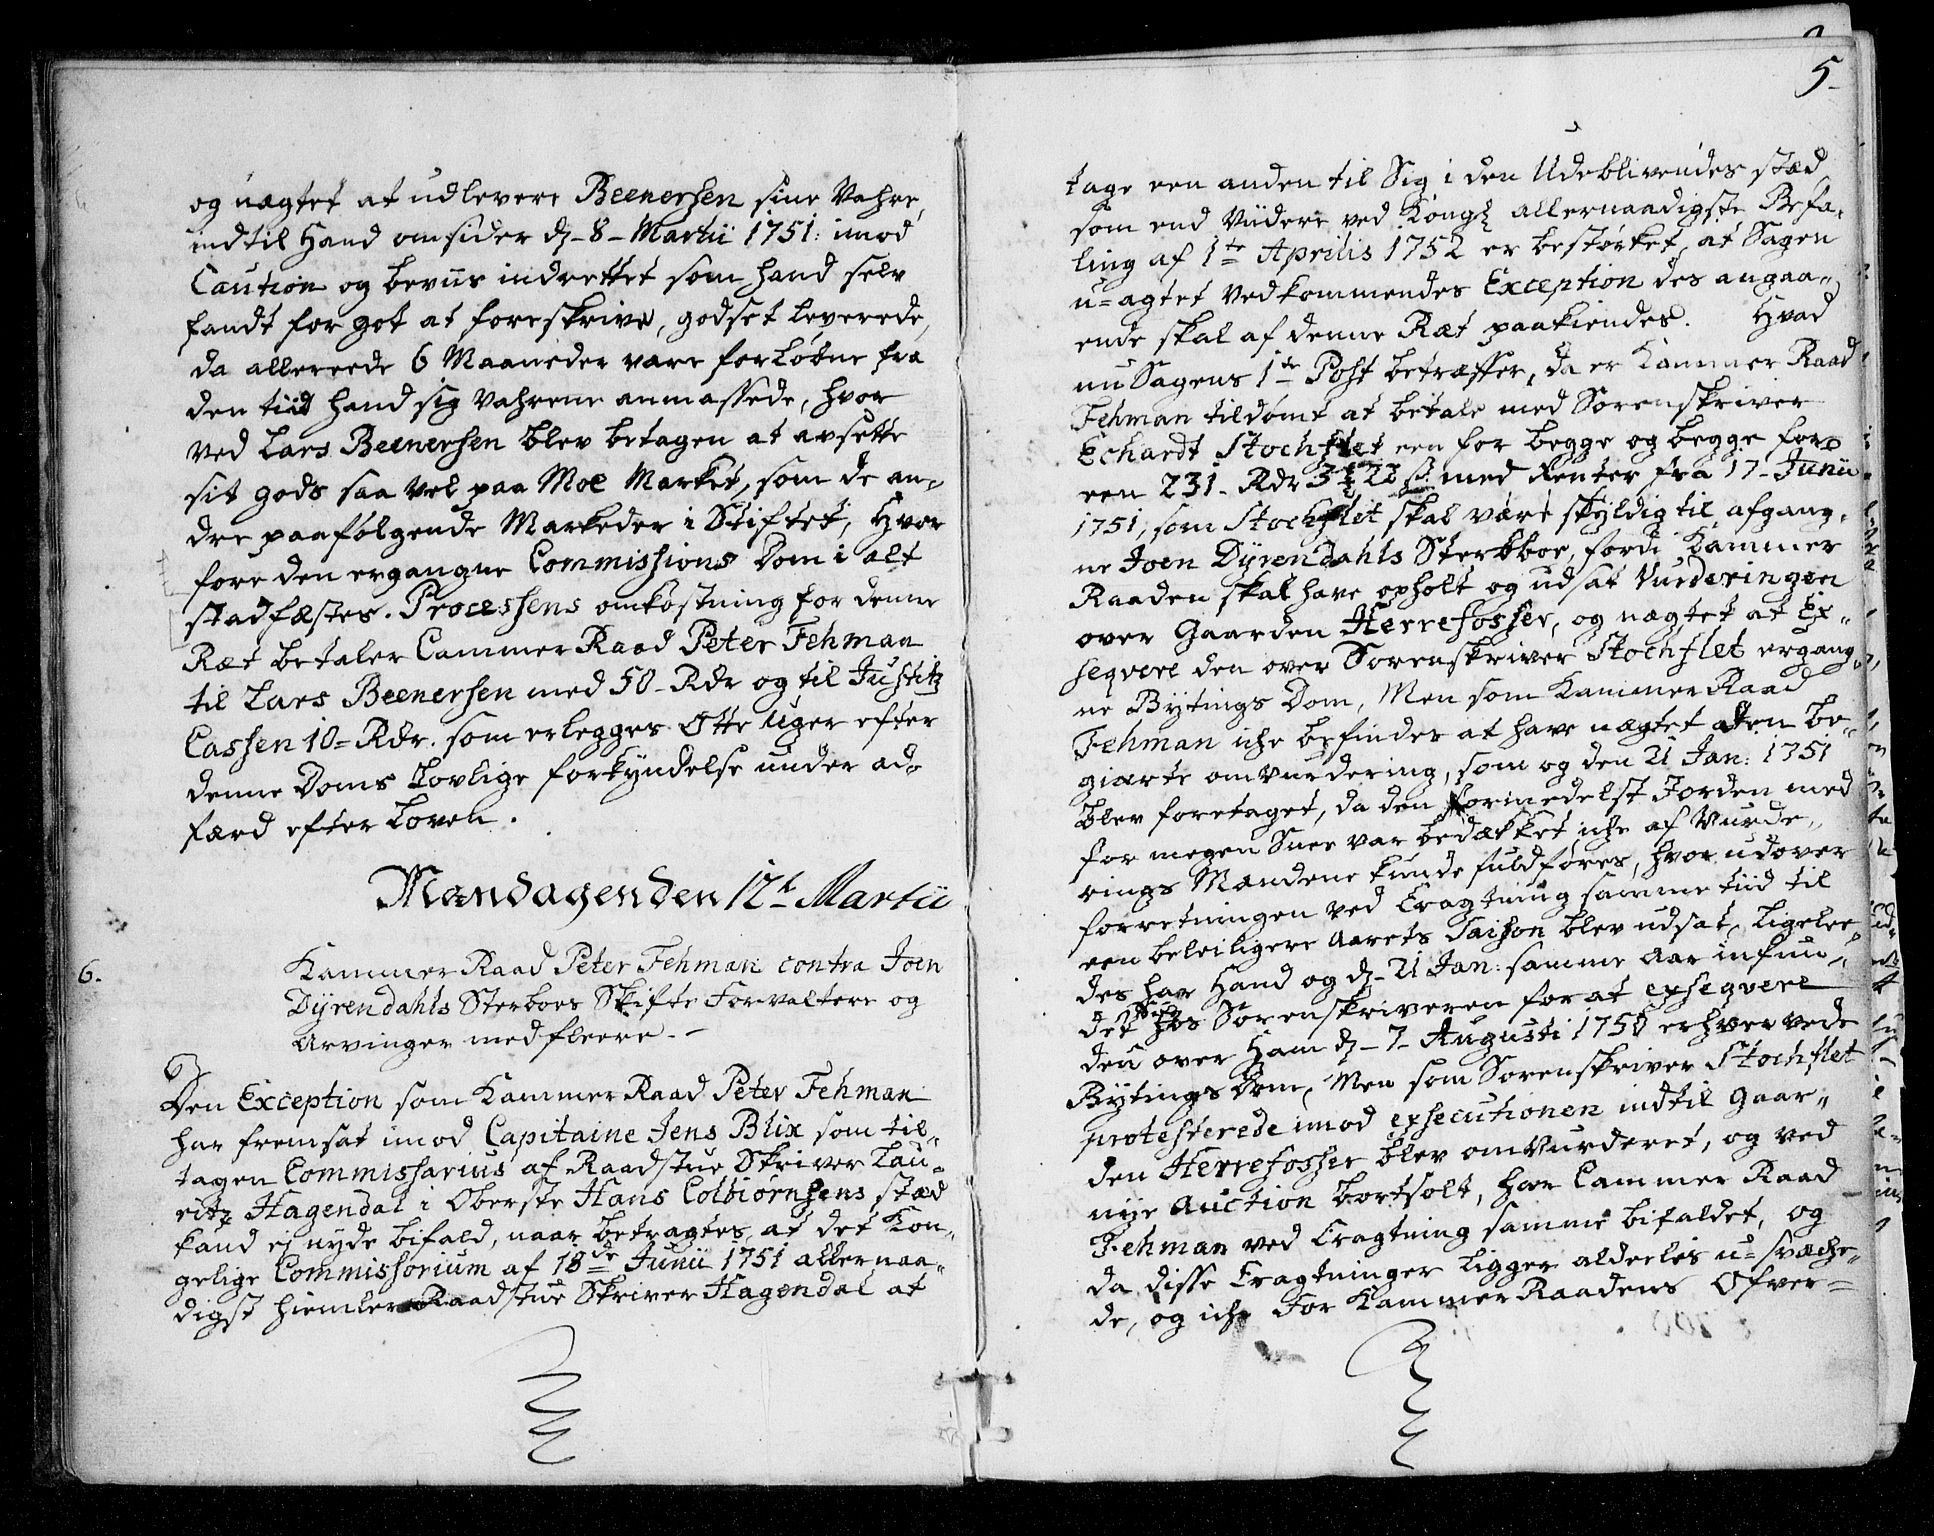 og nægtet at udlevere Beenersen sine Vahre,
indtil Hand omsider d. 8 Martii 1751: imod
Caution og bevus indrettet som hand selv
fandt for got at foreskrive, godset leverede,
da allereede 6 Maaneder vare forløbne fra
den tiid hand sig Vahrene anmassede, hvor
ved Lars Beenersen blev betagen at avsette
sit gods saa vel paa Moe Market, som de an-
dre paafølgende Markeder i Stiftet, Hvor
fore den ergangne Commissions Dom i alt
stadfæstes. Processens omkostning for denne
Ræt betaler Cammer Raad Peter Fehman
til Lars Beenersen med 50 Rdr og til Justitz
Cassen 10 Rdr. som erlegges Otte Uger efter
denne Doms Lovlige forkyndelse under ad-
færd efter Loven.
Mandagen den 12t Martii
6.
Kammer Raad Peter Fehman contra Joen
Dÿrendahls Sterboes Skifte Forvaltere og
Arvinger med fleere.
Den Exception som Kammer Raad Peter Fehman
har fremsat imod Capitaine Jens Blix som til-
tagen Commissarius af Raadstue Skriver Lau-
ritz Hagendal i Oberste Hans Colbiørnsens stæd
kand ej nyde bifald, naar betragtes, at det Kon-
gelige Commissorium af 18de Junii 1751 allernaa-
digst hiemler Raadstue Skriver Hagendal at
5
tage een anden til Sig i den Udeblivendes stæd
som end Viidere ved Kongl allernaadigste Befa-
ling af 1te Aprilis 1752 er bestørket, at Sagen
u-agtet Vedkommendes Exception des angaa-
ende skal af denne Ræt paakiendes. Hvad
nu Sagens 1te Post betræffer, da er Kammer Raad
Fehman tildømt at betale med Sorenskriver
Echardt Stochflet een for begge og begge for
een 231 Rdr 3 22 s med Renter fra 17 Junii
1751, som Stochflet skal være skyldig til afgang-
ne Joen Dÿrendahls Sterbboe, fordi Kammer
Raaden skal have opholt og udsat Vurderingen
over Gaarden Herrefosser, og nægtet at Ex-
seqvere den over Sorenskriver Stochflet ergang-
ne Bytings Dom, Men som Kammer Raad
Fehman iche befindes at have nægtet den be-
giærte omvurdering, som og den 21 Jan: 1751
blev foretaget, da den formedelst Jorden med
for megen Snee var bedækket iche af Vurde-
rings Mændene kunde fuldføres, hvor udover
forretningen ved Eragtning samme tiid til
een beleiligere Aarets Saison blev udsat, Ligelee-
des har Hand og d. 21 Jan: samme Aar infun-
det sig hos Sorenskriveren for at exseqvere
den over Ham d. 7 Augusti 1750 erhvervede
Bytings Dom, Men som Sorenskriver Stochflet
protesterede imod exsecutionen indtil Gaar-
den Herrefosser blev omvurderet, og ved
nye Auction bortsolt, har Cammer Raad
Fehman ved Eragtning samme bifaldet, og
da disse Eragtninger ligger aldeeles u-svæche-
de, og iche For Kammer Raadens Ofver-